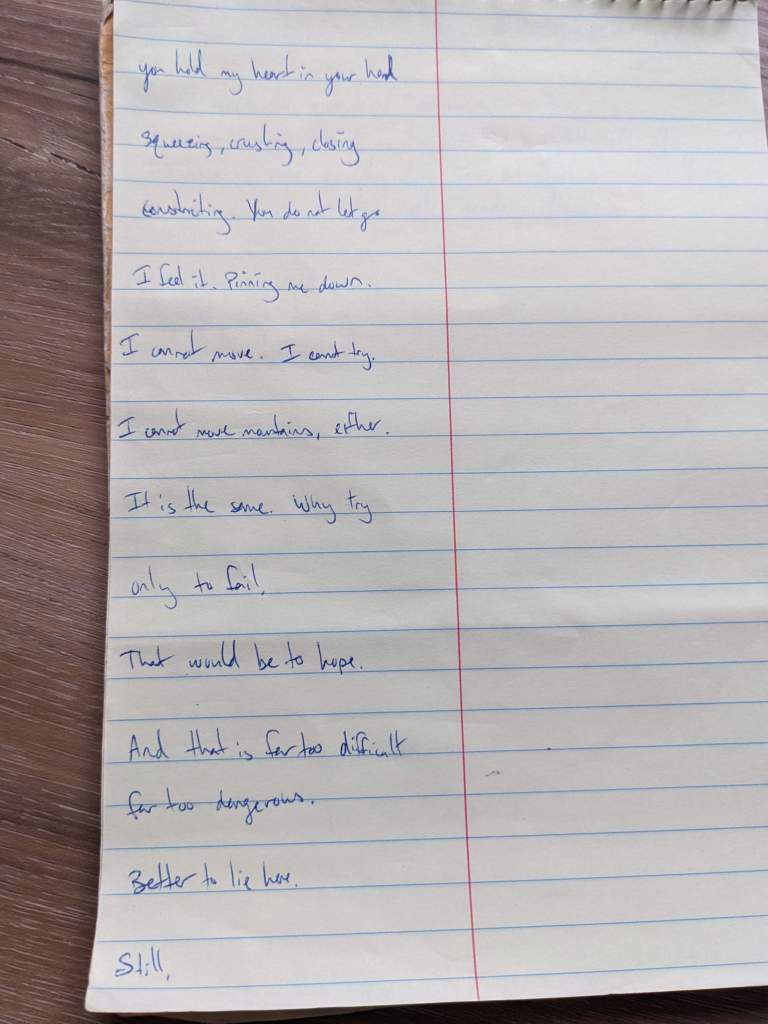 you hold my heart in your hand
squeezing, crushing, closing
constricting. You do not let go
I feel it. Pinning me down.
I cannot move. I cannot try.
I cannot move mountains, either.
It is the same. Why try
only to fail.
That would be to hope.
And that is far too difficult
far too dangerous.
Better to lie here.
Still.